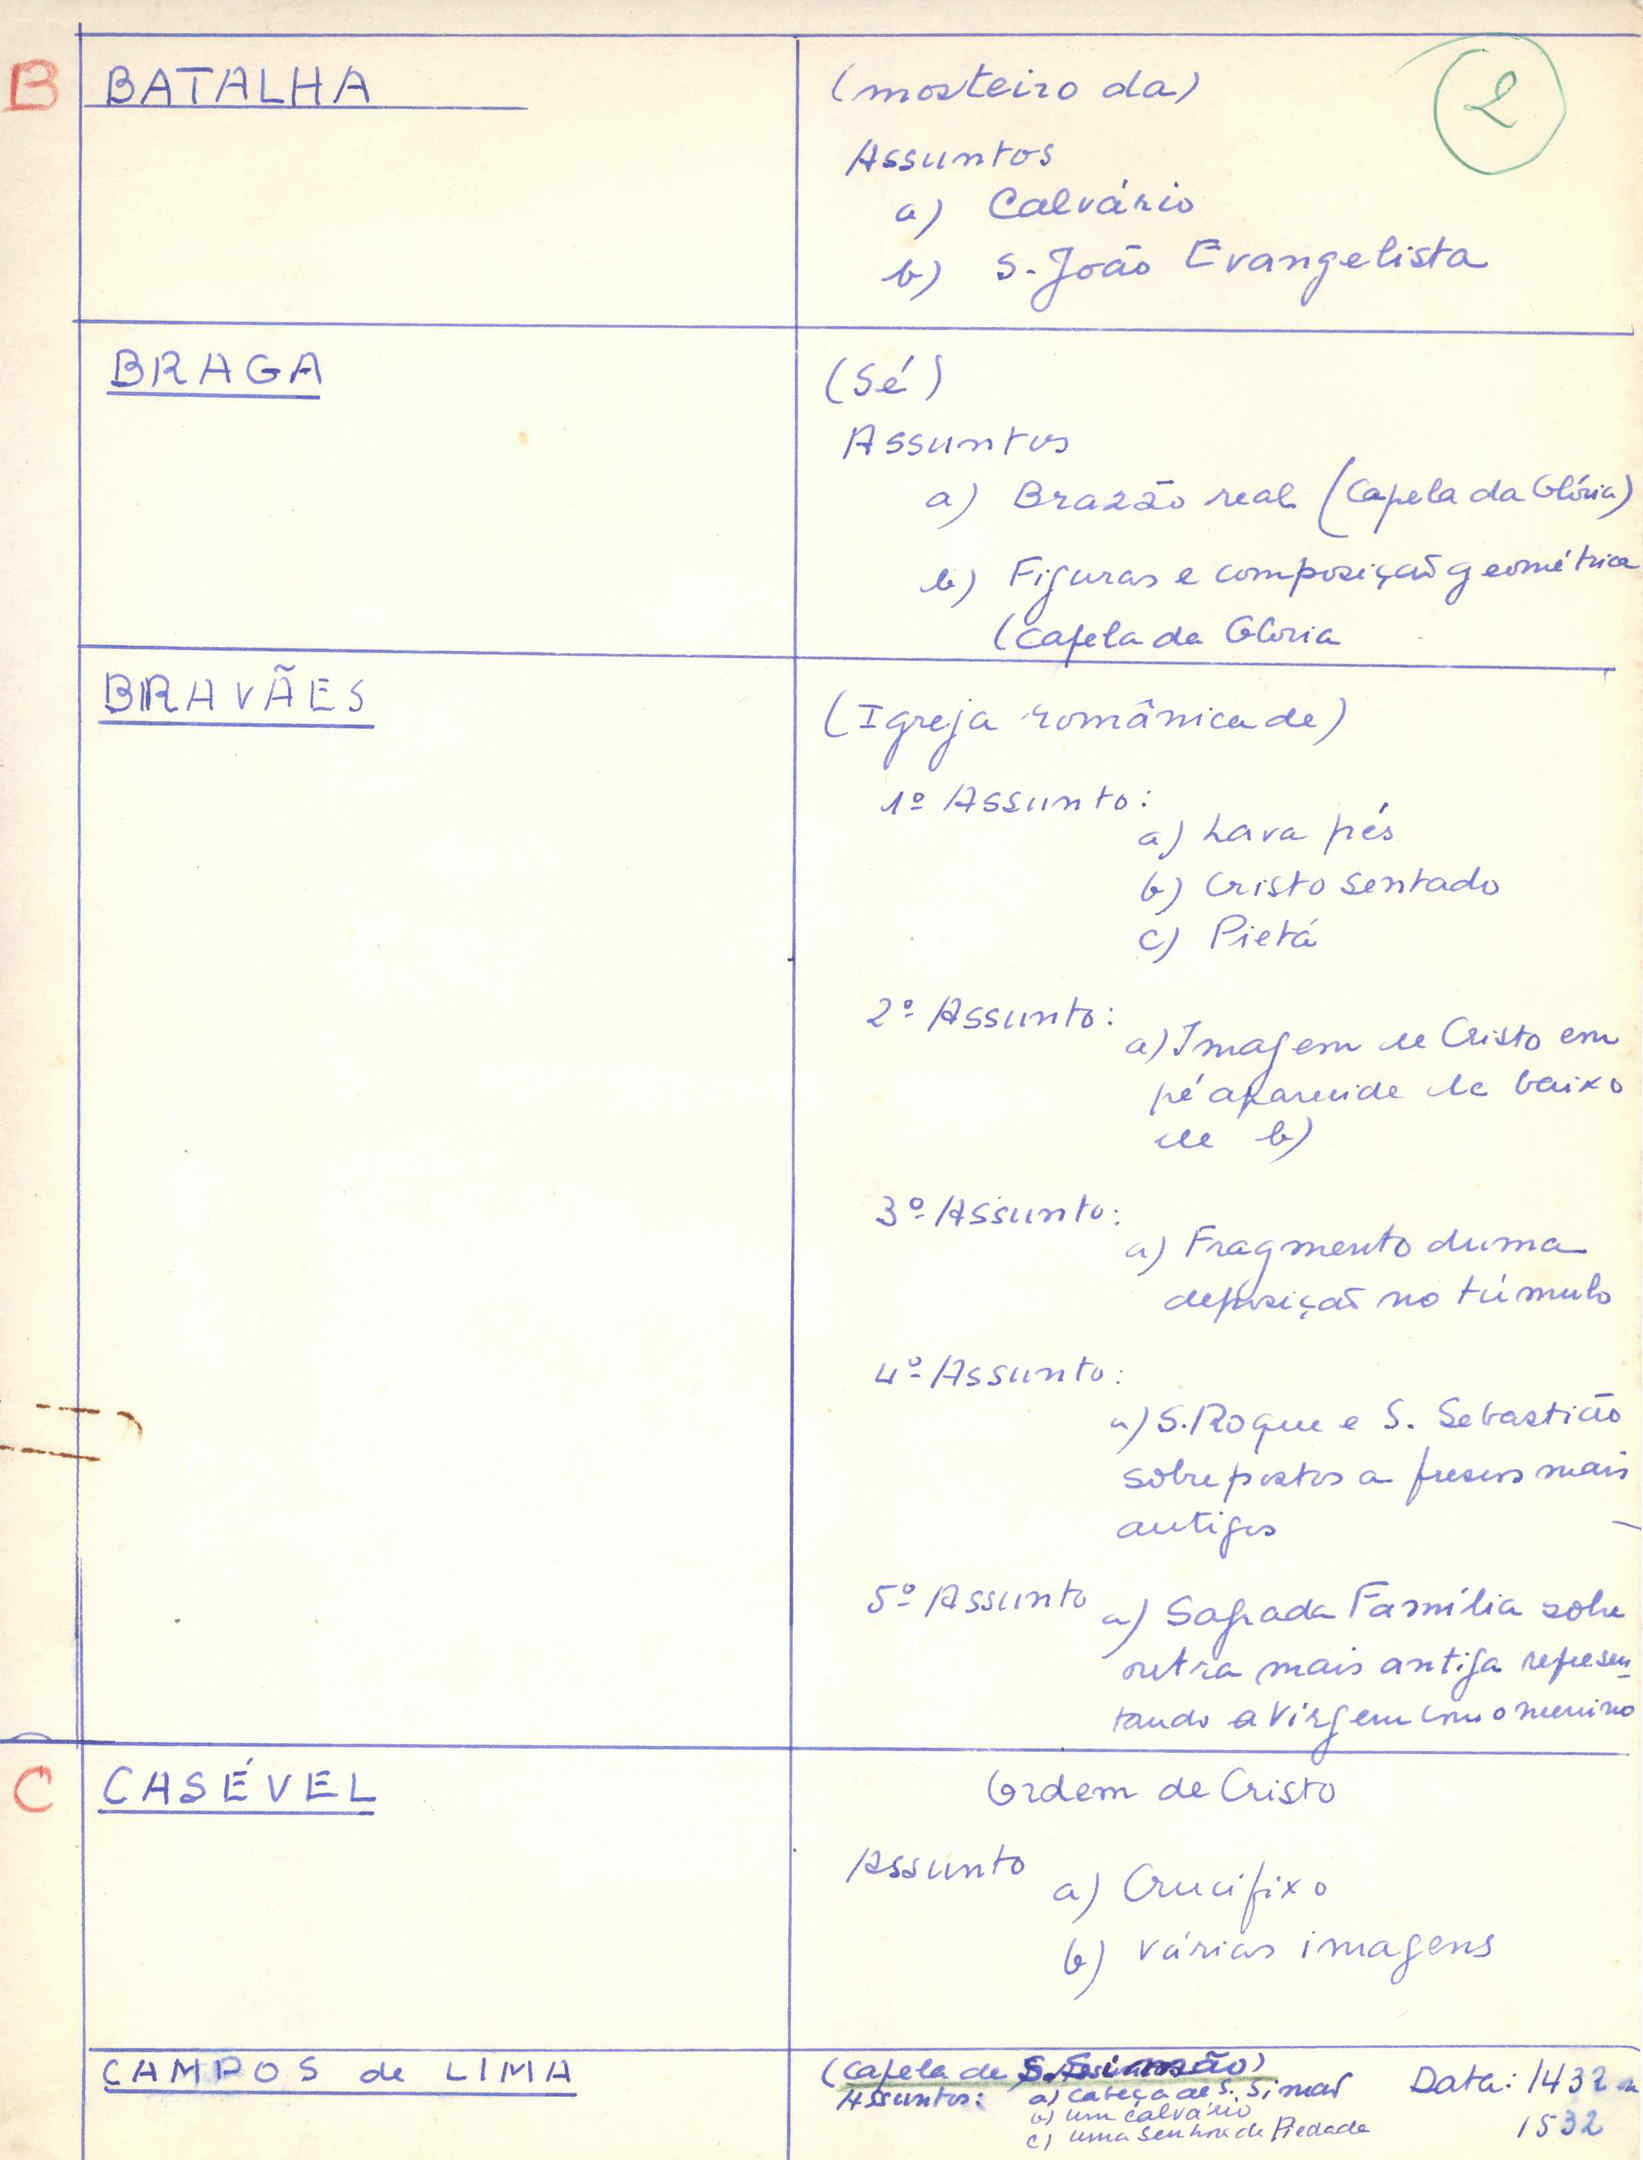 2
B BATALHA (mosteiro da)
Assuntos
a) Calvário
b) S. João Evangelista
BRAGA (Sé)
Assuntos
a) Brazão real (Capela da Glória)
b) Figuras e composição geométrica
(Capela da Gloria
BRAVÃES (Igreja românica de)
1º Assunto:
a) Lava pés
b) Cristo sentado
c) Pietá
2º Assunto:
a) Imagem de Cristo em
pé aparecida de baixo
de b)
3º Assunto:
a) Fragmento duma
deposição no túmulo
4º Assunto:
a) S. Roque e S. Sebastião
sobrepostos a frescos mais
antigos
5º Assunto a) Sagrada Família sobre
outra mais antiga represen-
tando a Virgem com o menino
C CASÉVEL Ordem de Cristo
Assunto
a) Crucifixo
b) várias imagens
CAMPOS de LIMA (Capela de S. Simão)
Assuntos: a) Cabeça de S. Simão Data: 1432 a
b) um calvário
c) uma Senhora da Piedade 1532